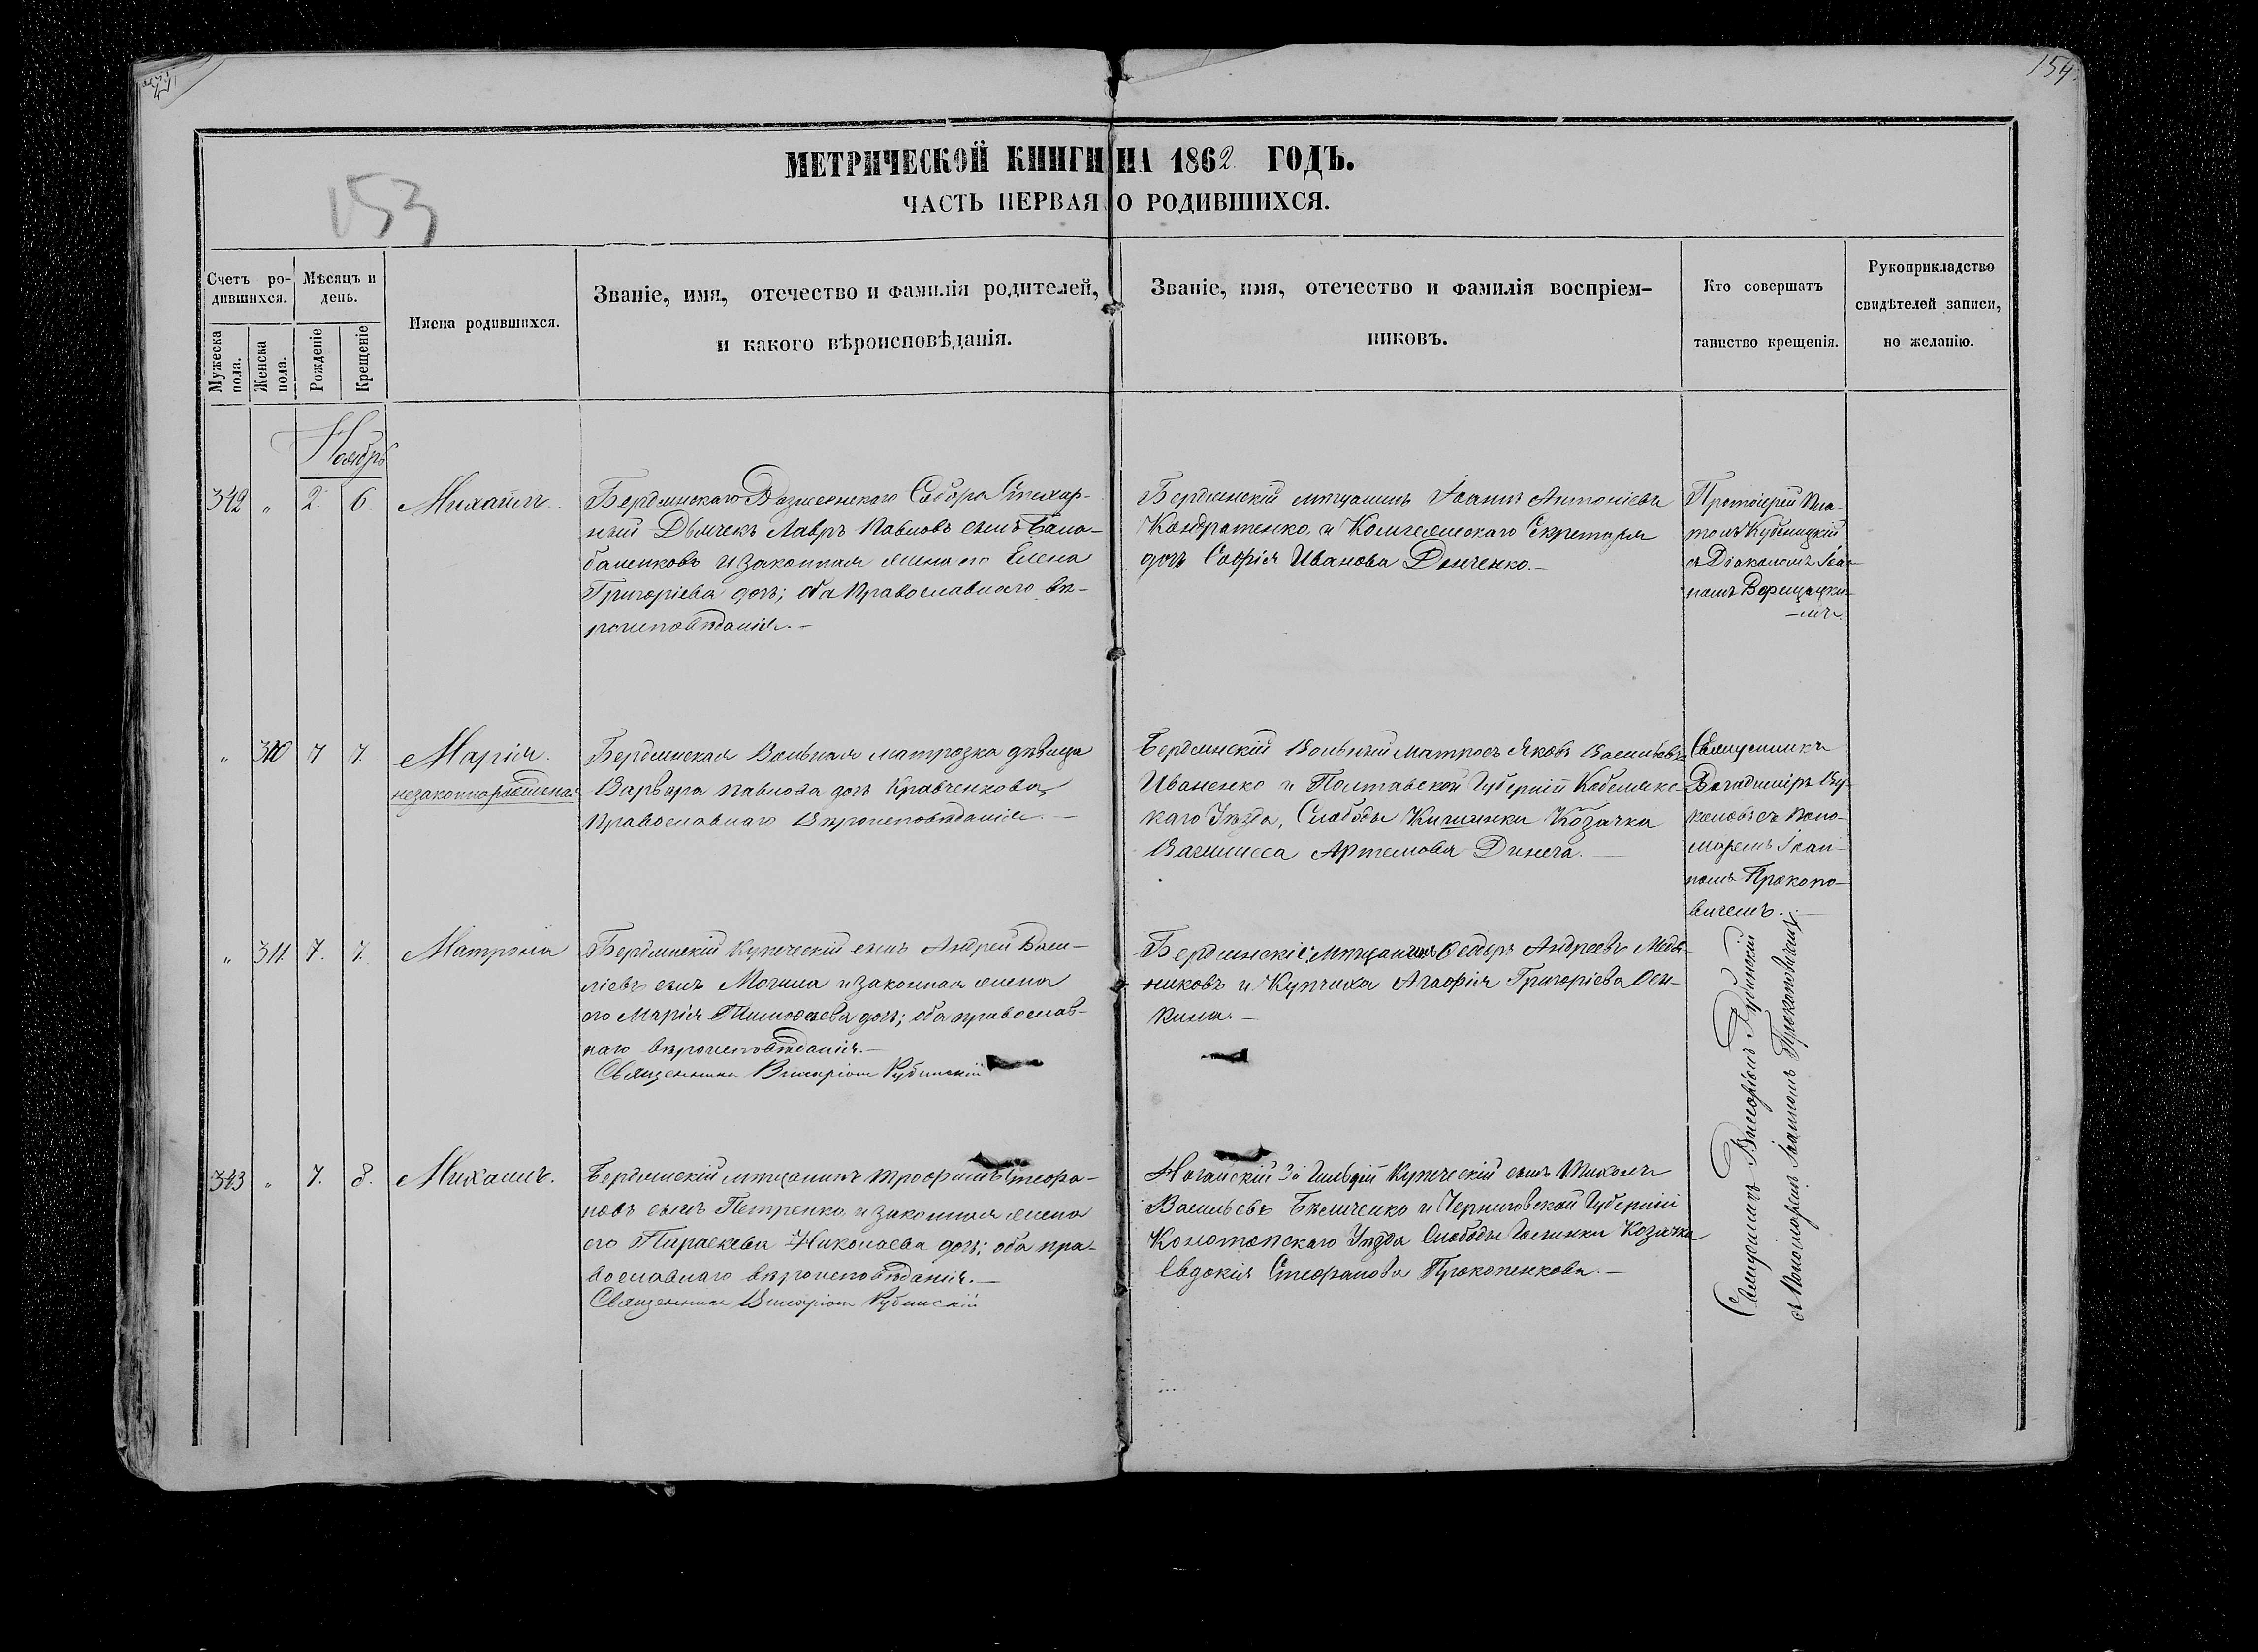 154
153
МЕТРИЧЕСКОЙ КНИГИ НА 1862 ГОДЪ.
ЧАСТЬ ПЕРВАЯ О РОДИВШИХСЯ.
Счетъ ро-
дившихся.
Мѣсяцъ и
день.
Мужеска
пола.
Женска
пола.
Рожденіе
Крещеніе
Имена родившихся.
Званіе, имя, отечество и фамилія родителей,
и какого вѣроисповѣданія.
Званіе, имя, отечество и фамилія воспріем-
никовъ.
Кто совершатъ
таинство крещенія.
Рукоприкладство
свидѣтелей записи,
по желанію.
Ноябрь
342 " 2. 6. Михаилъ.
Бердянскаго Вознесенскаго Собора Стихар-
ный Дьячекъ Лавръ Павловъ сынъ Бала-
баненковъ и законная жена его Елена
Григоріева дочь; оба Православнаго вѣ-
роисповѣданія.-
Бердянскій мѣщанинъ Іоаннъ Антоніевъ
Кондратенко, и Коллежскаго Секретаря
дочь Софія Иванова Демченко.-
Протоіерей Пла-
тонъ
съ Діакономъ Іоан-
номъ
-мъ.
" 310 7 7. Марія.
незаконнорожденная
Бердянская Вольная матрозка дѣвица
Варвара Павлова дочь Кравченкова,
Православнаго Вѣроисповѣданія.-
Бердянскій Вольный Матросъ Яковъ Васильевъ
Иваненко и Полтавской Губерніи Кобеляк-
каго Уѣзда, Слободы Кишинки Козачка
Василисса Артемова Динега.-
Священникъ
Владиміръ Ву-
коловъ съ Поно-
маремъ Іоан-
номъ Прокопо-
вичемъ.-
" 311. 7. 7. Матрона
Бердянскій Купеческій сынъ Андрей Васи-
ліевъ сынъ Могила и законная жена
его Марія Тимофеева дочь; оба православ-
наго вѣроисповѣданія.-
Священникъ Рубинскій
Бердянскіе: мѣщанинъ Ѳеодоръ Андреевъ Медя-
никовъ и Купчиха Агафія Григоріева Оси-
кина.-
343 " 7. 8. Михаилъ.
Бердянскій мѣщанинъ Трофимъ Стефа-
новъ сынъ Петренко и законная жена
его Параскева Николаева дочь; оба пра-
вославнаго вѣроисповѣданія.-
Священникъ Рубинскій
Ногайскій 3й Гильдіи Купеческій сынъ Михаилъ
Васильевъ Бѣличенко и Черниговской Губерніи
Конотопскаго Уѣзда Слободы Козачка
Евдокія Стефанова Прокопенкова.-
Священникъ Рубинскій
съ Пономаремъ Іоанномъ Прокоповичемъ